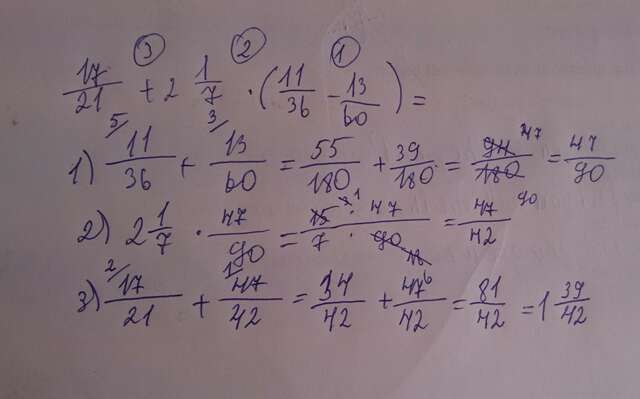 ③ ② ①
17/21 + 2 1/7 · (11/36 - 13/60) =
1) 11/36 ⁵ + 13/60 ³ = 55/180 + 39/180 = 94/180 47 90 = 47/90
2) 2 1/7 · 47/90 = 15 3 1 · 47 / 7 · 90 18 6 = 47/42
3) 17/21 ² + 47/42 ¹ = 34/42 + 47/42 = 81/42 = 1 39/42